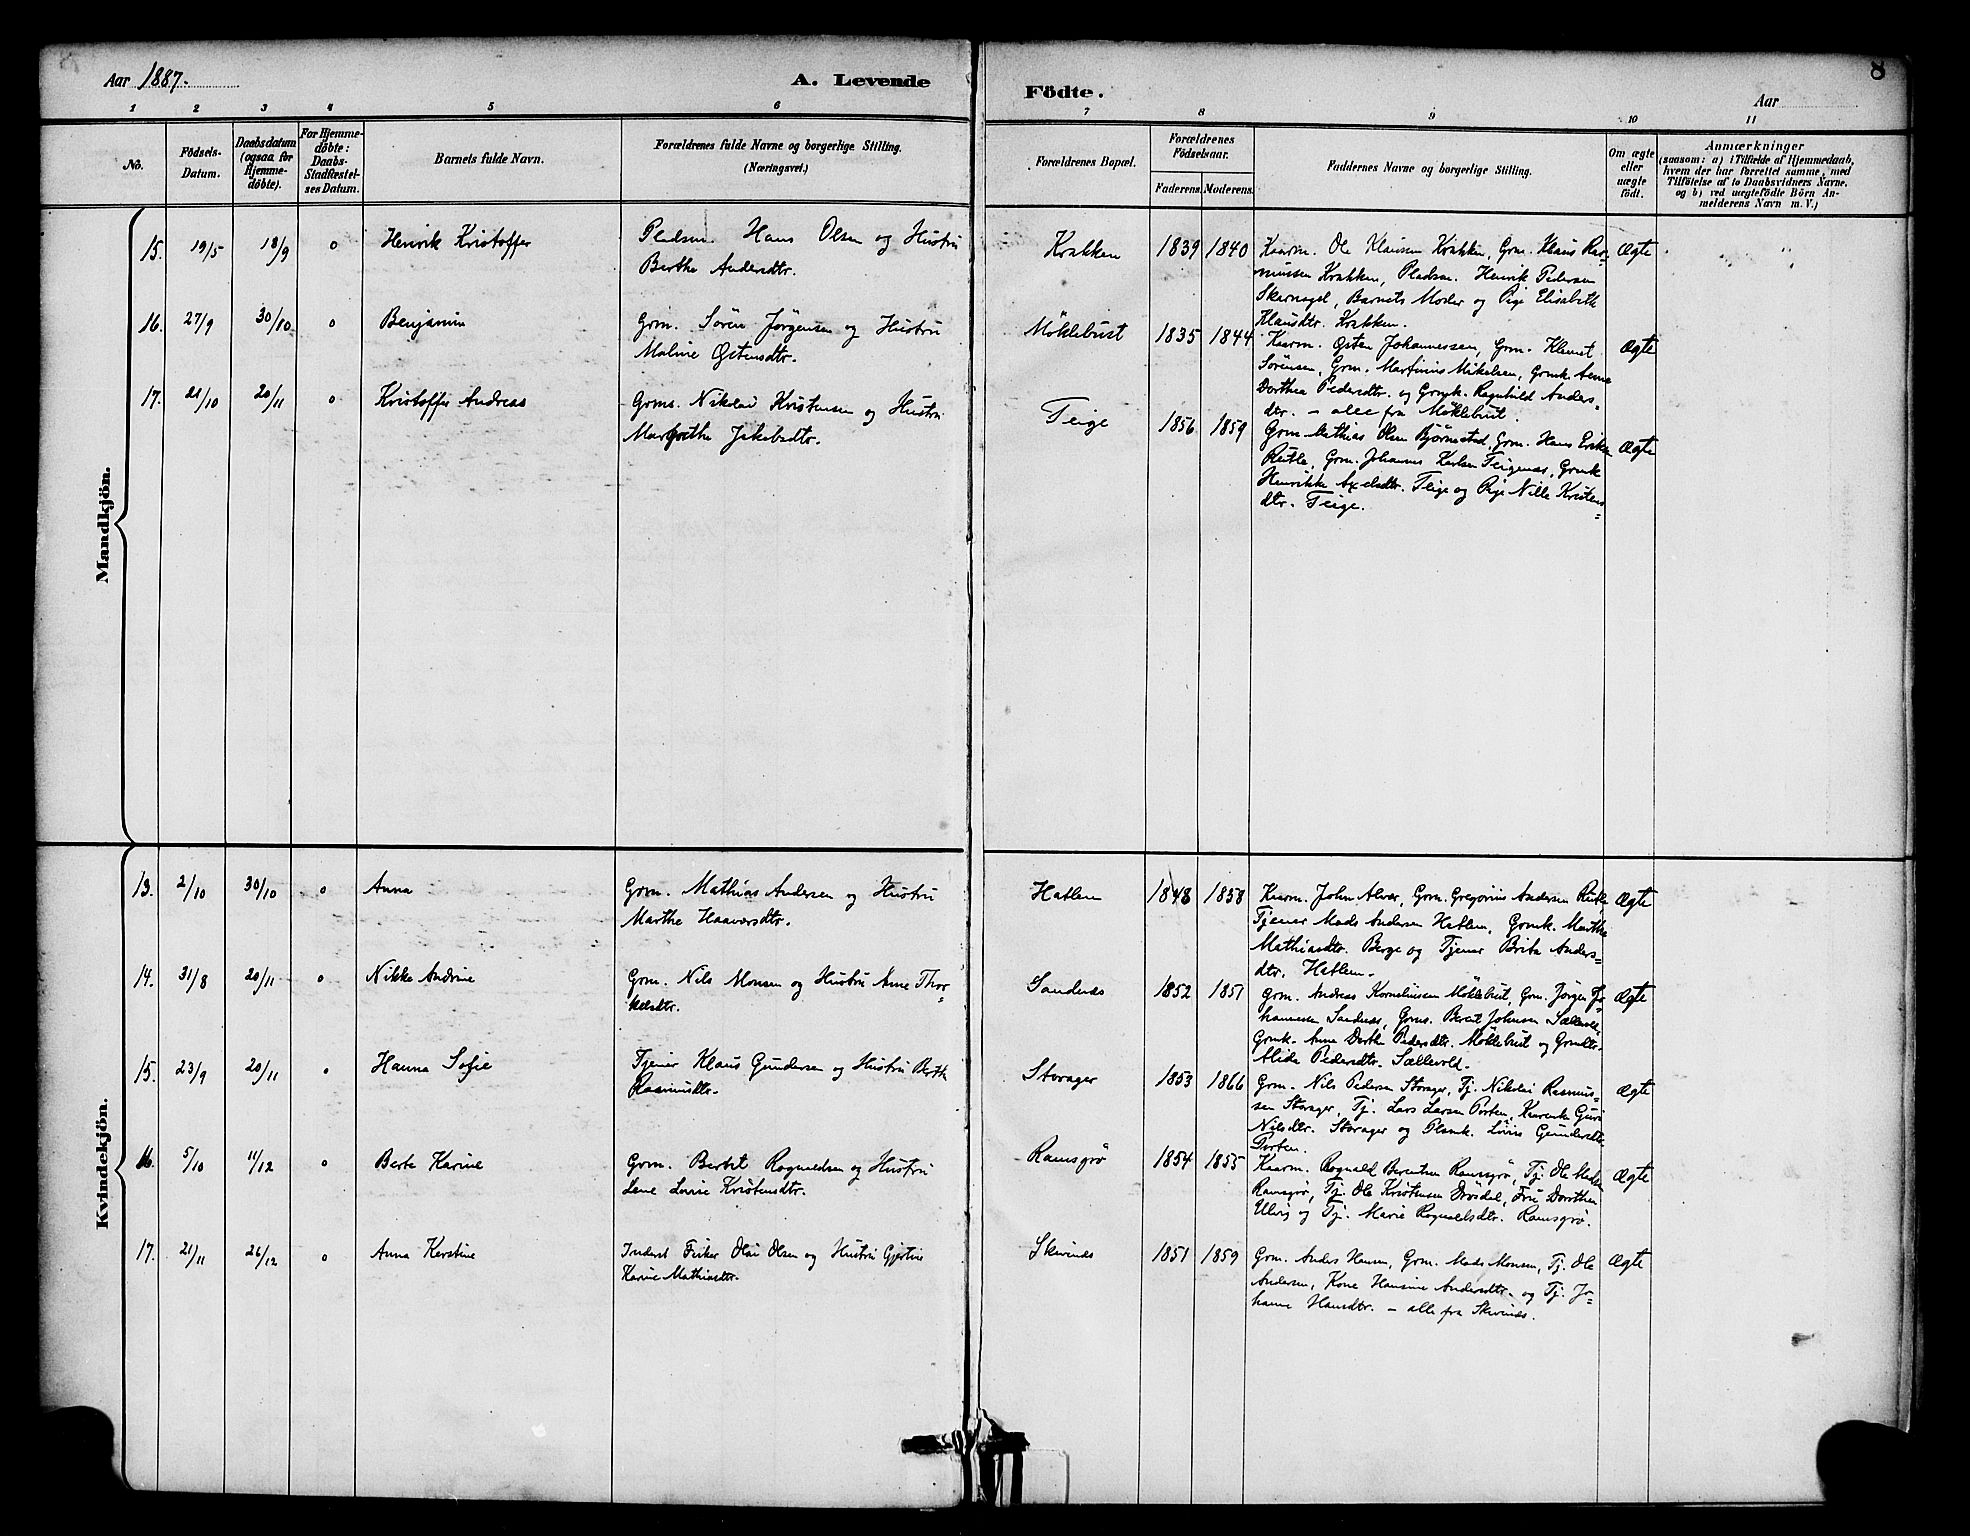 Aar 1887.
A. Levende
Födte.
Aar
8
1 2 3 4 5 6 7 8 9 10 11
No.
Födsels-
Datum.
Daabsdatum
(ogsaa for
Hjemme-
döbte).
For Hjemme-
döbte:
Daabs-
Stadfæstel-
ses Datum.
Barnets fulde Navn.
Forældrenes fulde Navne og borgerlige Stilling.
(Næringsvei.)
Forældrenes Bopæl.
Forældrenes
Födselsaar.
Faderens. Moderens.
Faddernes Navne og borgerlige Stilling.
Om ægte
eller
uægte
födt.
Anmærkninger
(saasom: a) i Tilfælde af Hjemmedaab,
hvem der har forrettet samme, med
Tilföielse af to Daabsvidners Navne,
og b) ved uægtefödte Börn An-
melderens Navn m. V.)
Mandkjön.
15. 19/5 18/9 o Henrik Kristoffer
Pladsm. Hans Olsen og Hustru
Berthe Andersdtr.
Krakken 1839 1840
Kaarm. Ole Klausen Krakken, Grm. Klaus Ras-
mussen Krakken, Pladsm. Henrik Pedersen
Skarnagel, Barnets Moder og Pige Elisabeth
Klausdtr. Krakken.
Ægte
16. 27/9 30/10 o Benjamin
Grm. Sören Jörgensen og Hustru
Maline Östensdtr.
Möklebust 1835 1844
Kaarm. Östen Johannessen, Grm. Klemet
Sörensen, Grm. Martinus Mikelsen, Grmk. Anne
Dorthea Pedersdtr. og Grmk. Ragnhild Anders-
dtr. – alle fra Möklebust.
Ægte
17. 21/10 20/11 o Kristoffer Andreas
Grms. Nikolai Kristensen og Hustru
Margrethe Jakobsdtr.
Teige 1856 1859
Grm. Mathias Olsen Björnestad, Grm. Hans Eriksen
Rutle, Grm. Johannes Karlsen Teigenæs, Grmk
Henrikke Axelsdtr. Teige og Pige Nille Kristens-
dtr. Teige.
Ægte
Kvindekjön.
13. 2/10 30/10 o Anna
Grm. Mathias Andersen og Hustru
Marthe Haaversdtr.
Hatlem 1848 1858
Kaarm. John Alver, Grm. Gregorius Andersen Rutle
Tjener Mads Andersen Hatlem, Grmk. Marthe
Mathiasdtr. Berge og Tjener Brita Anders-
dtr. Hatlem.
Ægte
14. 31/8 20/11 o Nikka Andrine
Grm. Nils Monsen og Hustru Anne Thor-
kelsdtr.
Sandnæs 1852 1851
Grm. Andreas Korneliussen Möklebust, Grm. Jörgen Jo-
hannessen Sandnæs, Grms. Berent Johnsen Sællevold
Grmk. Anne Dorthe Pedersdtr. Möklebust og Grmdtr.
Alida Pedersdtr. Sællevold.
Ægte
15. 23/9 20/11 o Hanna Sofie
Tjener Klaus Gundersen og Hustru Berthe
Rasmusdtr.
Storager 1853 1866
Grm. Nils Pedersen Storager, Tj. Nikolai Rasmus-
sen Storager, Tj. Lars Larsen Porten, Kaarenke Guri
Nilsdtr. Storager og Plsmk. Lovise Gundersdtr.
Porten.
Ægte
16. 5/10 11/12 o Berte Karine
Grm. Bertel Rognaldsen og Hustru
Lene Lovise Kristensdtr.
Ramsgrö 1854 1855
Kaarm. Rognald Berentsen Ramsgrö, Tj. Ole Madsen
Ramsgrö, Tj. Ole Kristensen Drösdal, Fru Dorothea
Ulvig og Tj. Marie Rognaldsdtr. Ramsgrö.
Ægte
17. 21/11 26/12 o Anna Kerstine
Inderst Fisker Olai Olsen og Hustru Gjertine
Karine Mathiasdtr.
Skivenes 1851 1859
Grm. Anders Hansen, Grm. Mads Monsen, Tj. Ole
Andersen, Kone Hansine Andersdtr. og Tj. Jo-
hanne Hansdtr. – alle fra Skivenes.
Ægte